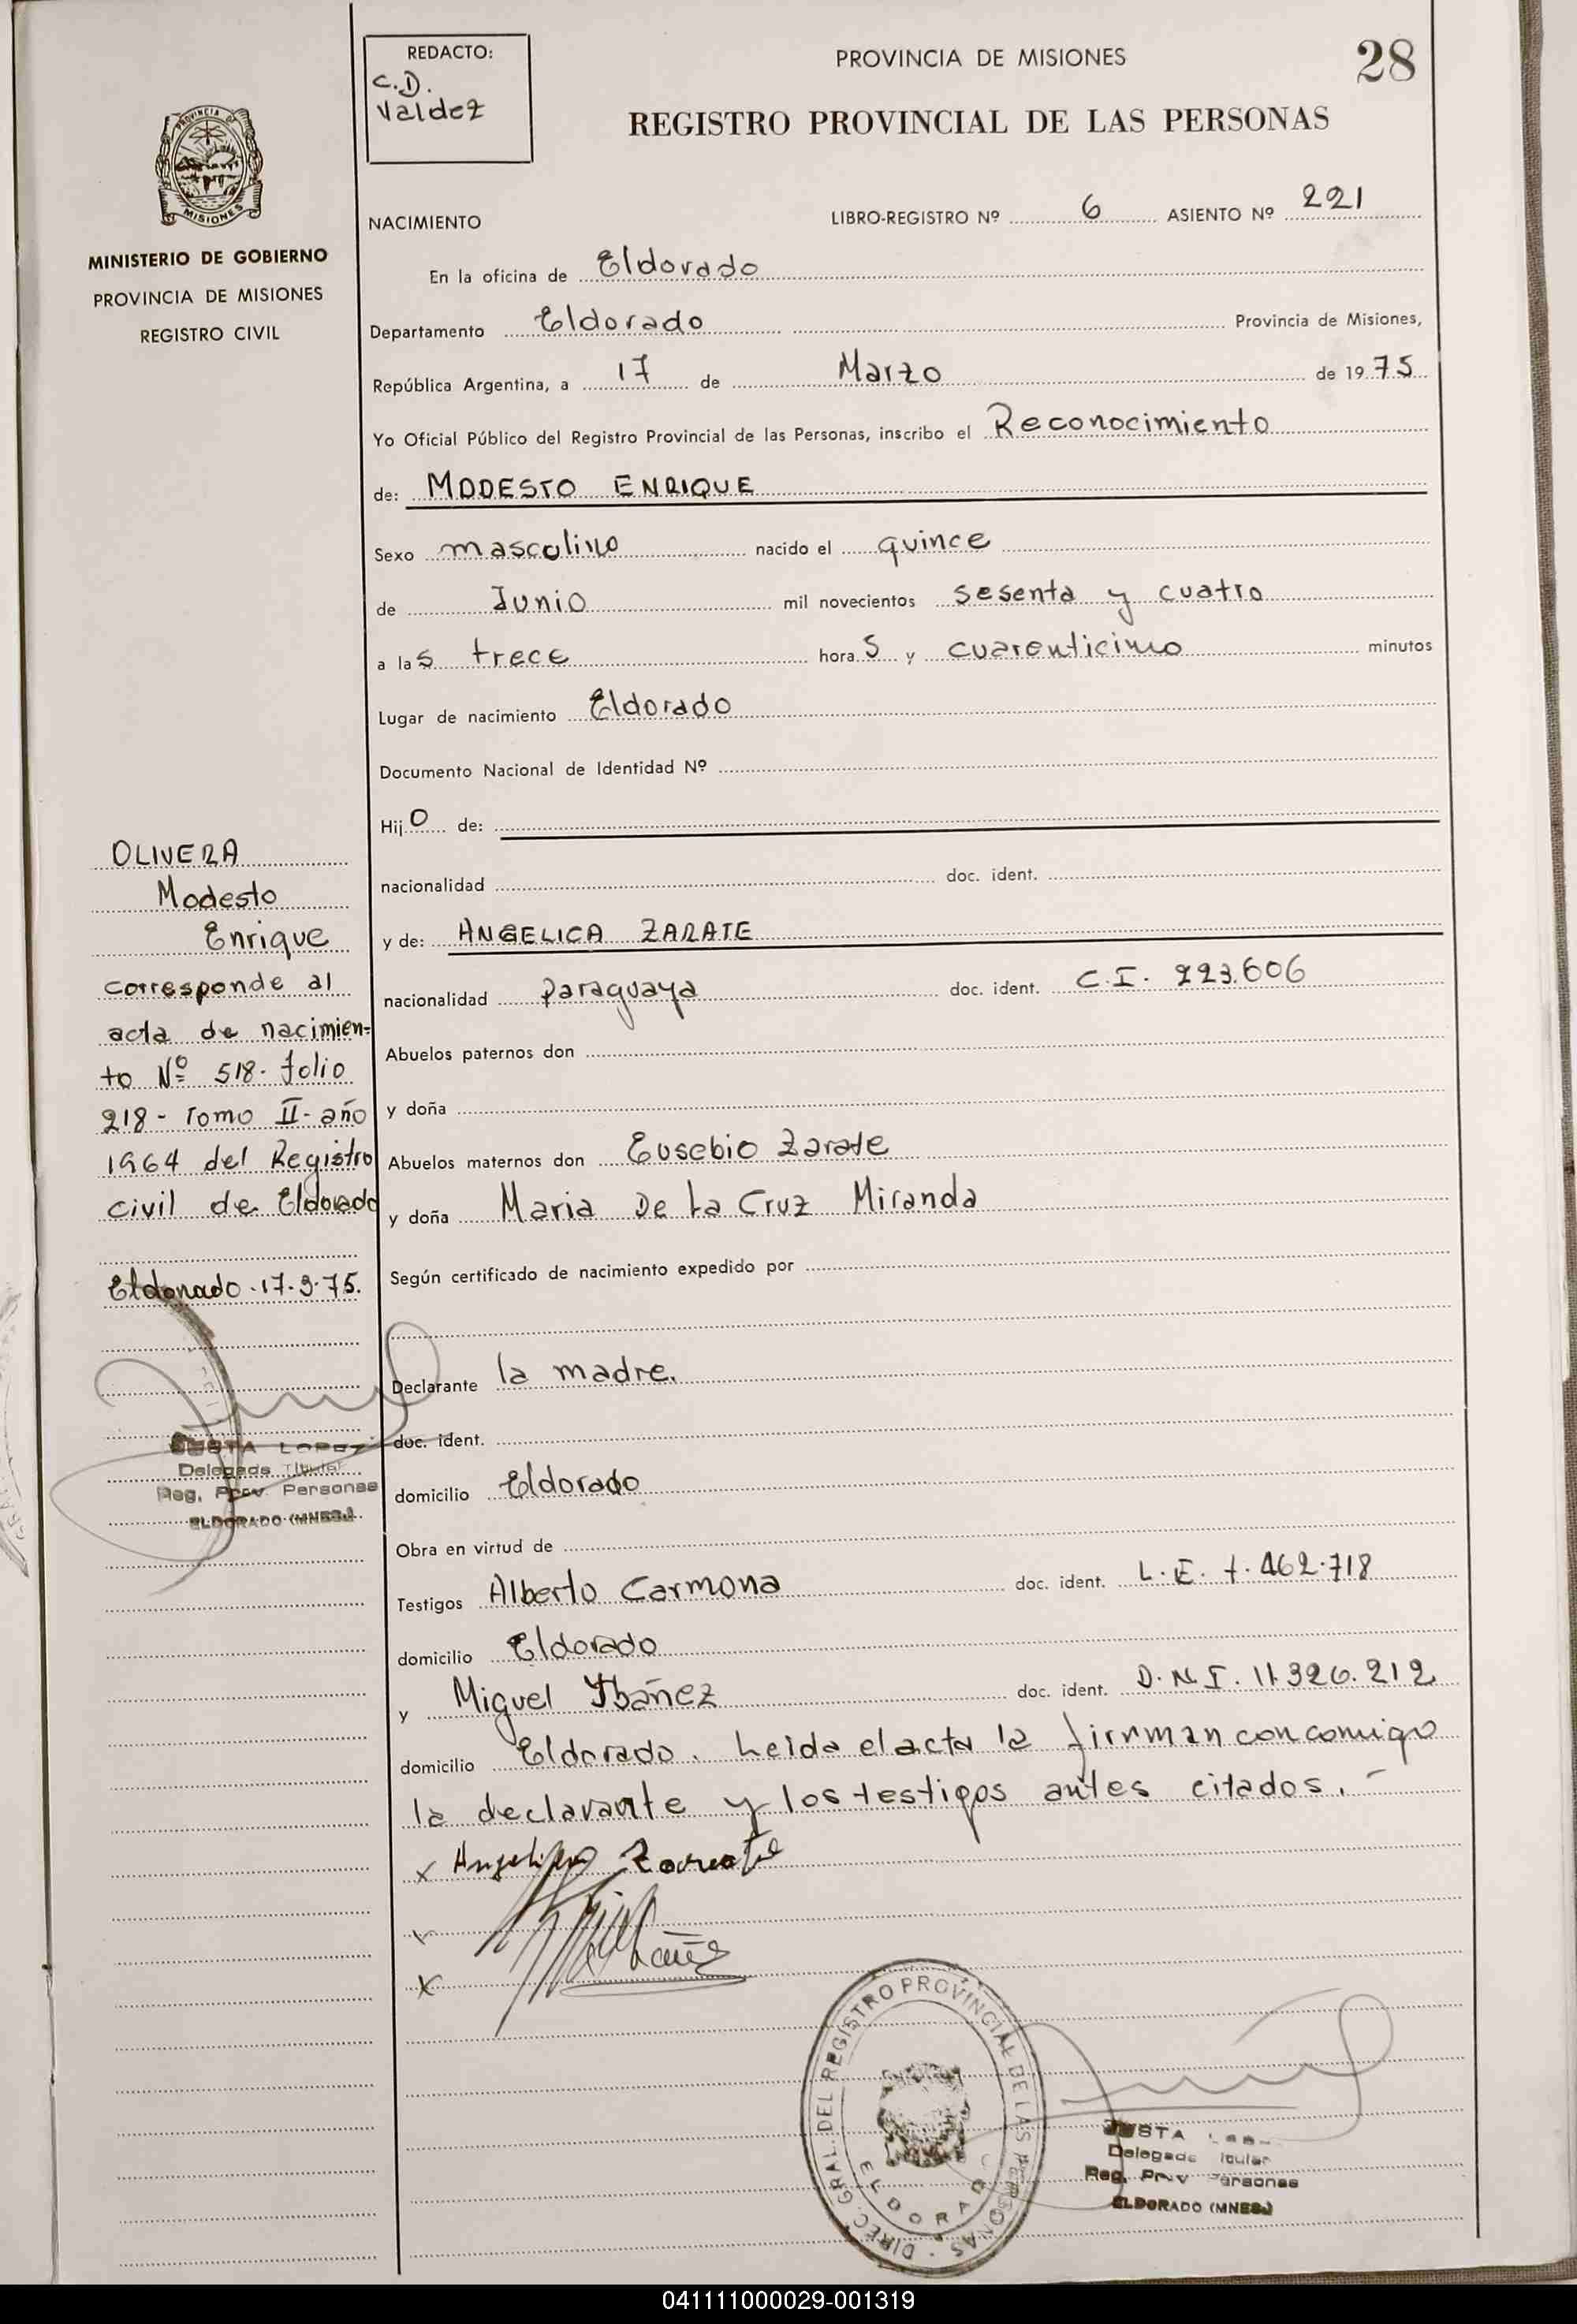 REDACTO:
C.D.
Valdez
PROVINCIA DE MISIONES
28
REGISTRO PROVINCIAL DE LAS PERSONAS
PROVINCIA DE
MISIONES
MINISTERIO DE GOBIERNO
PROVINCIA DE MISIONES
REGISTRO CIVIL
NACIMIENTO LIBRO-REGISTRO Nº 6 ASIENTO Nº 221
En la oficina de Eldorado
Departamento Eldorado Provincia de Misiones,
República Argentina, a 17 de Marzo de 1975
Yo Oficial Público del Registro Provincial de las Personas, inscribo el Reconocimiento
de: MODESTO ENRIQUE
Sexo masculino nacido el quince
de Junio mil novecientos sesenta y cuatro
a las trece horas y cuarenticinco minutos
Lugar de nacimiento Eldorado
Documento Nacional de Identidad Nº
Hijo de:
nacionalidad doc. ident.
y de: ANGELICA ZARATE
nacionalidad paraguaya doc. ident. C.I. 223.606
Abuelos paternos don
y doña
Abuelos maternos don Eusebio Zarate
y doña Maria De La Cruz Miranda
Según certificado de nacimiento expedido por
Declarante la madre.
doc. ident.
domicilio Eldorado
Obra en virtud de
Testigos Alberto Carmona doc. ident. L.E. 7.462.718
domicilio Eldorado
y Miguel Ybañez doc. ident. D.N.I. 11.326.212
domicilio Eldorado. Leida el acta la firnman concomigo
la declarante y los testigos antes citados.-
x Angelica Zarate
x
OLIVERA
Modesto
Enrique
corresponde al
acta de nacimien=
to Nº 518- folio
218- Tomo II- año
1964 del Registro
civil de Eldorado
Eldorado-17-3-75.
JUSTA LOPEZ
Delegada Titular
Reg. Prov. Personas
ELDORADO (MNES.)
DIREC. GRAL. DEL REGISTRO PROVINCIAL DE LAS PERSONAS
ELDORADO
JUSTA
Delegada Titular
Reg. Prov Personas
ELDORADO (MNES.)
041111000029-001319